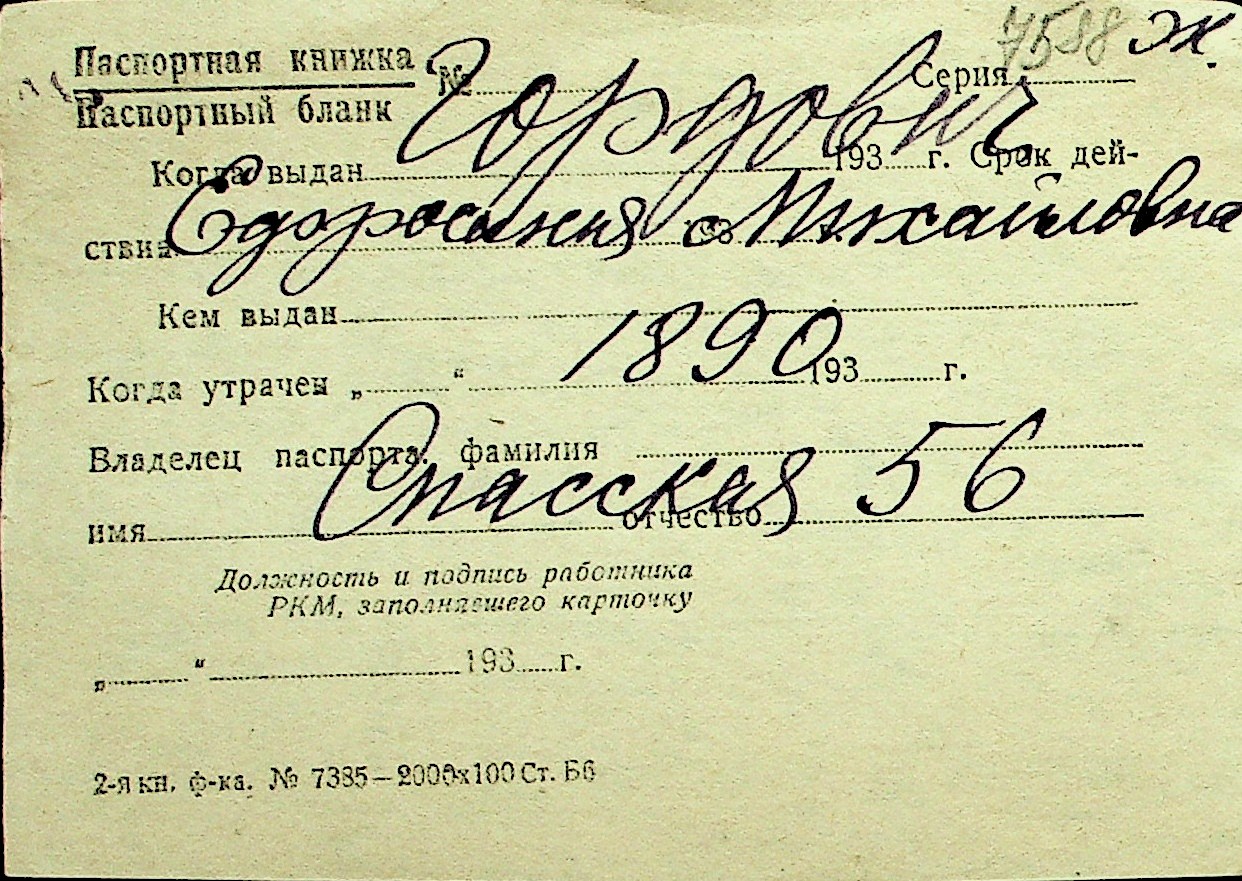 7588 ж.
Паспортная книжка № Серия
Паспортный бланк
Гордович
Когда выдан 193 г. Срок дей-
ствия
Ефросиния Михайловна
Кем выдан
1890
Когда утрачен „ “ 193 г.
Владелец паспорта: фамилия
Спасская 56
имя отчество
Должность и подпись работника
РКМ, заполнявшего карточку
„ “ 193 г.
2-я кн. ф-ка. № 7385–2000х100 Ст. Б6